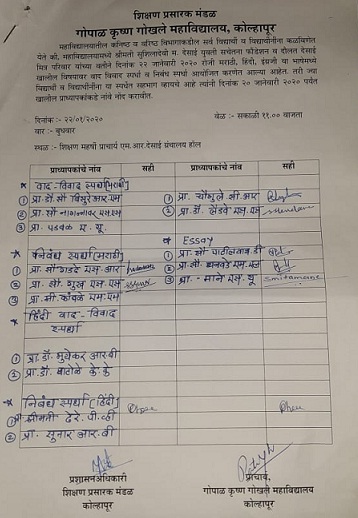 शिक्षण प्रसारक मंडळ
गोपाळ कृष्ण गोखले महाविद्यालय, कोल्हापूर
महाविद्यालयातील कनिष्ठ व वरिष्ठ विभागाकडील सर्व विद्यार्थी व विद्यार्थीनींना कळविणेत
येते की, महाविद्यालयामध्ये श्रीमती सुशिलादेवी म. देसाई युवती सचेतना फौंडेशन व दौलत देसाई
मित्र परिवार यांच्या वतीने दिनांक २२ जानेवारी २०२० रोजी मराठी, हिंदी, इंग्रजी या भाषेमध्ये
खालील विषयावर वाद विवाद स्पर्धा व निबंध स्पर्धा आयोजित करणेत आल्या आहेत. तरी ज्या
विद्यार्थी व विद्यार्थीनींना या स्पर्धेत सहभाग व्हायचे आहे त्यांनी दिनांक २० जानेवारी २०२० पर्यंत
खालील प्राध्यापकांकडे नावे नोंद करावीत.
दिनांक :- २२/०१/२०२० वेळ :- सकाळी ११.०० वाजता
वार :- बुधवार
स्थळ :- शिक्षण महर्षी प्राचार्य एम.आर.देसाई ग्रंथालय हॉल
प्राध्यापकांचे नांव सही प्राध्यापकांचे नांव सही
* वाद-विवाद स्पर्धा(मराठी)
① प्रा.डॉ.सौ बिसुरे आर.एम ① प्रा. चौगुले.बी.आर
② प्रा.सौ नागनावर एस.एम ② प्रा.डॉ. लेंडवे एस.एम
③ प्रा. पडवळ ए. यू.
* Essay
* निबंध स्पर्धा(मराठी) ① प्रा.सौ पाटील व्ही.डी
① प्रा.सौ एस.आर ② प्रा.सौ एस.एम
② प्रा.सौ गुरव एम.एम ③ प्रा. माने एस. यू smitamane
③ प्रा.सौ.कांबळे एस.एम
* हिंदी वाद-विवाद
स्पर्धा
① प्रा.डॉ. मुधेकर आर.बी
② प्रा.डॉ. बाटोळे के.के
* निबंध स्पर्धा(हिंदी)
① श्रीमती ढेरे.पी.व्ही
② प्रा. सुनार आर.बी
प्रशासनाधिकारी प्राचार्य,
शिक्षण प्रसारक मंडळ गोपाळ कृष्ण गोखले महाविद्यालय
कोल्हापूर कोल्हापूर